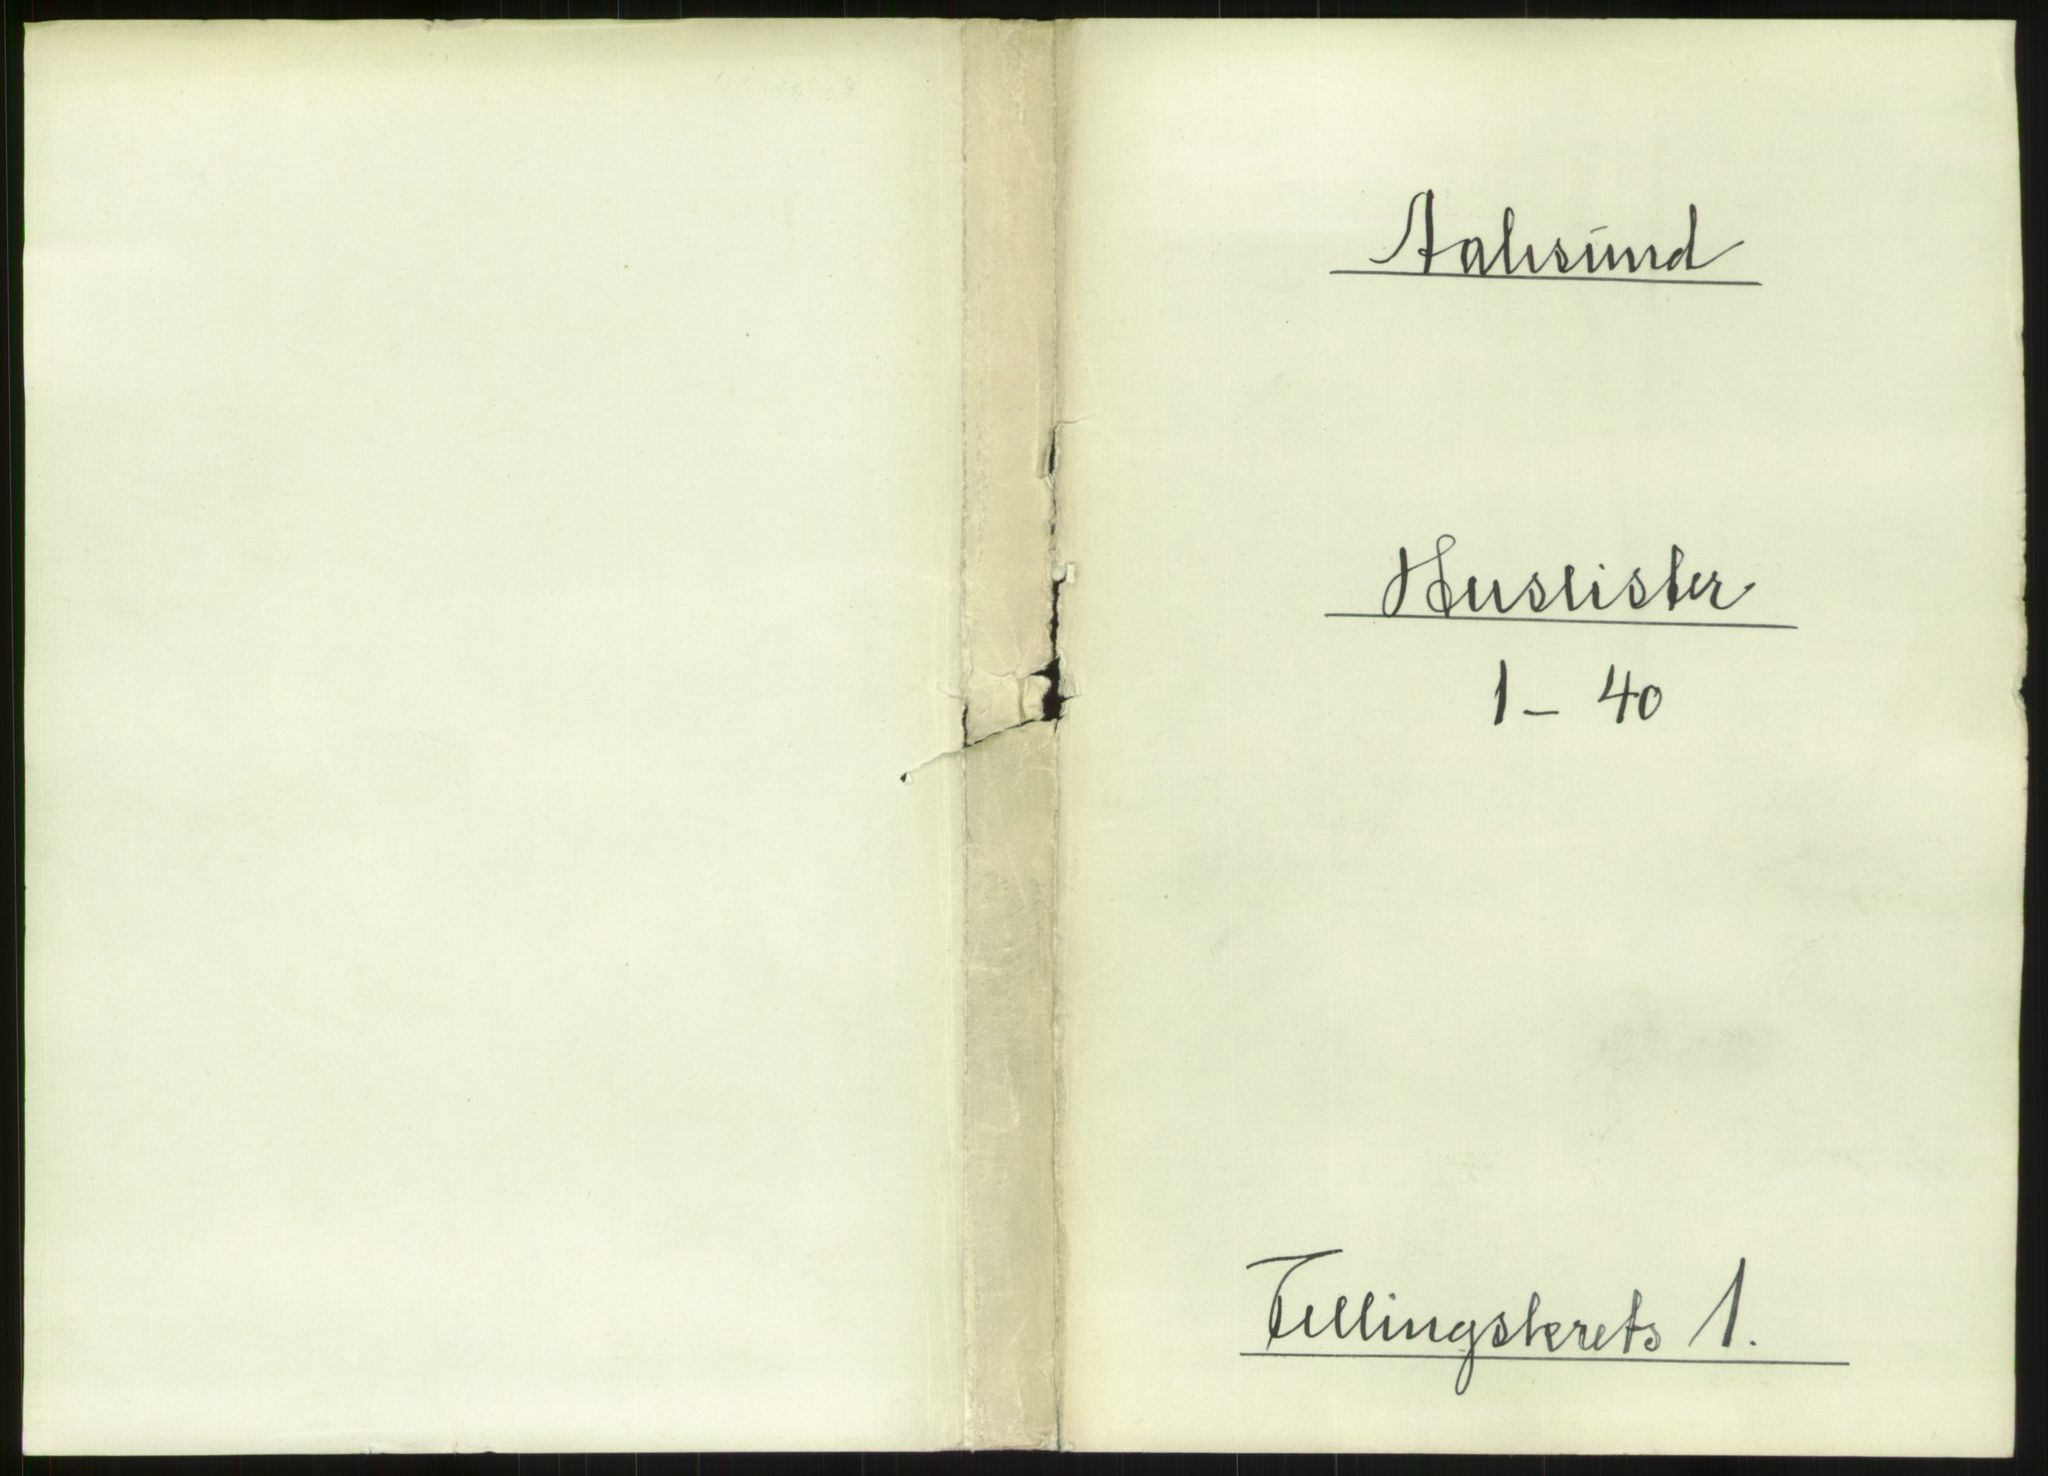 Aalesund
Huslister
1 – 40
Tellingskrets 1.